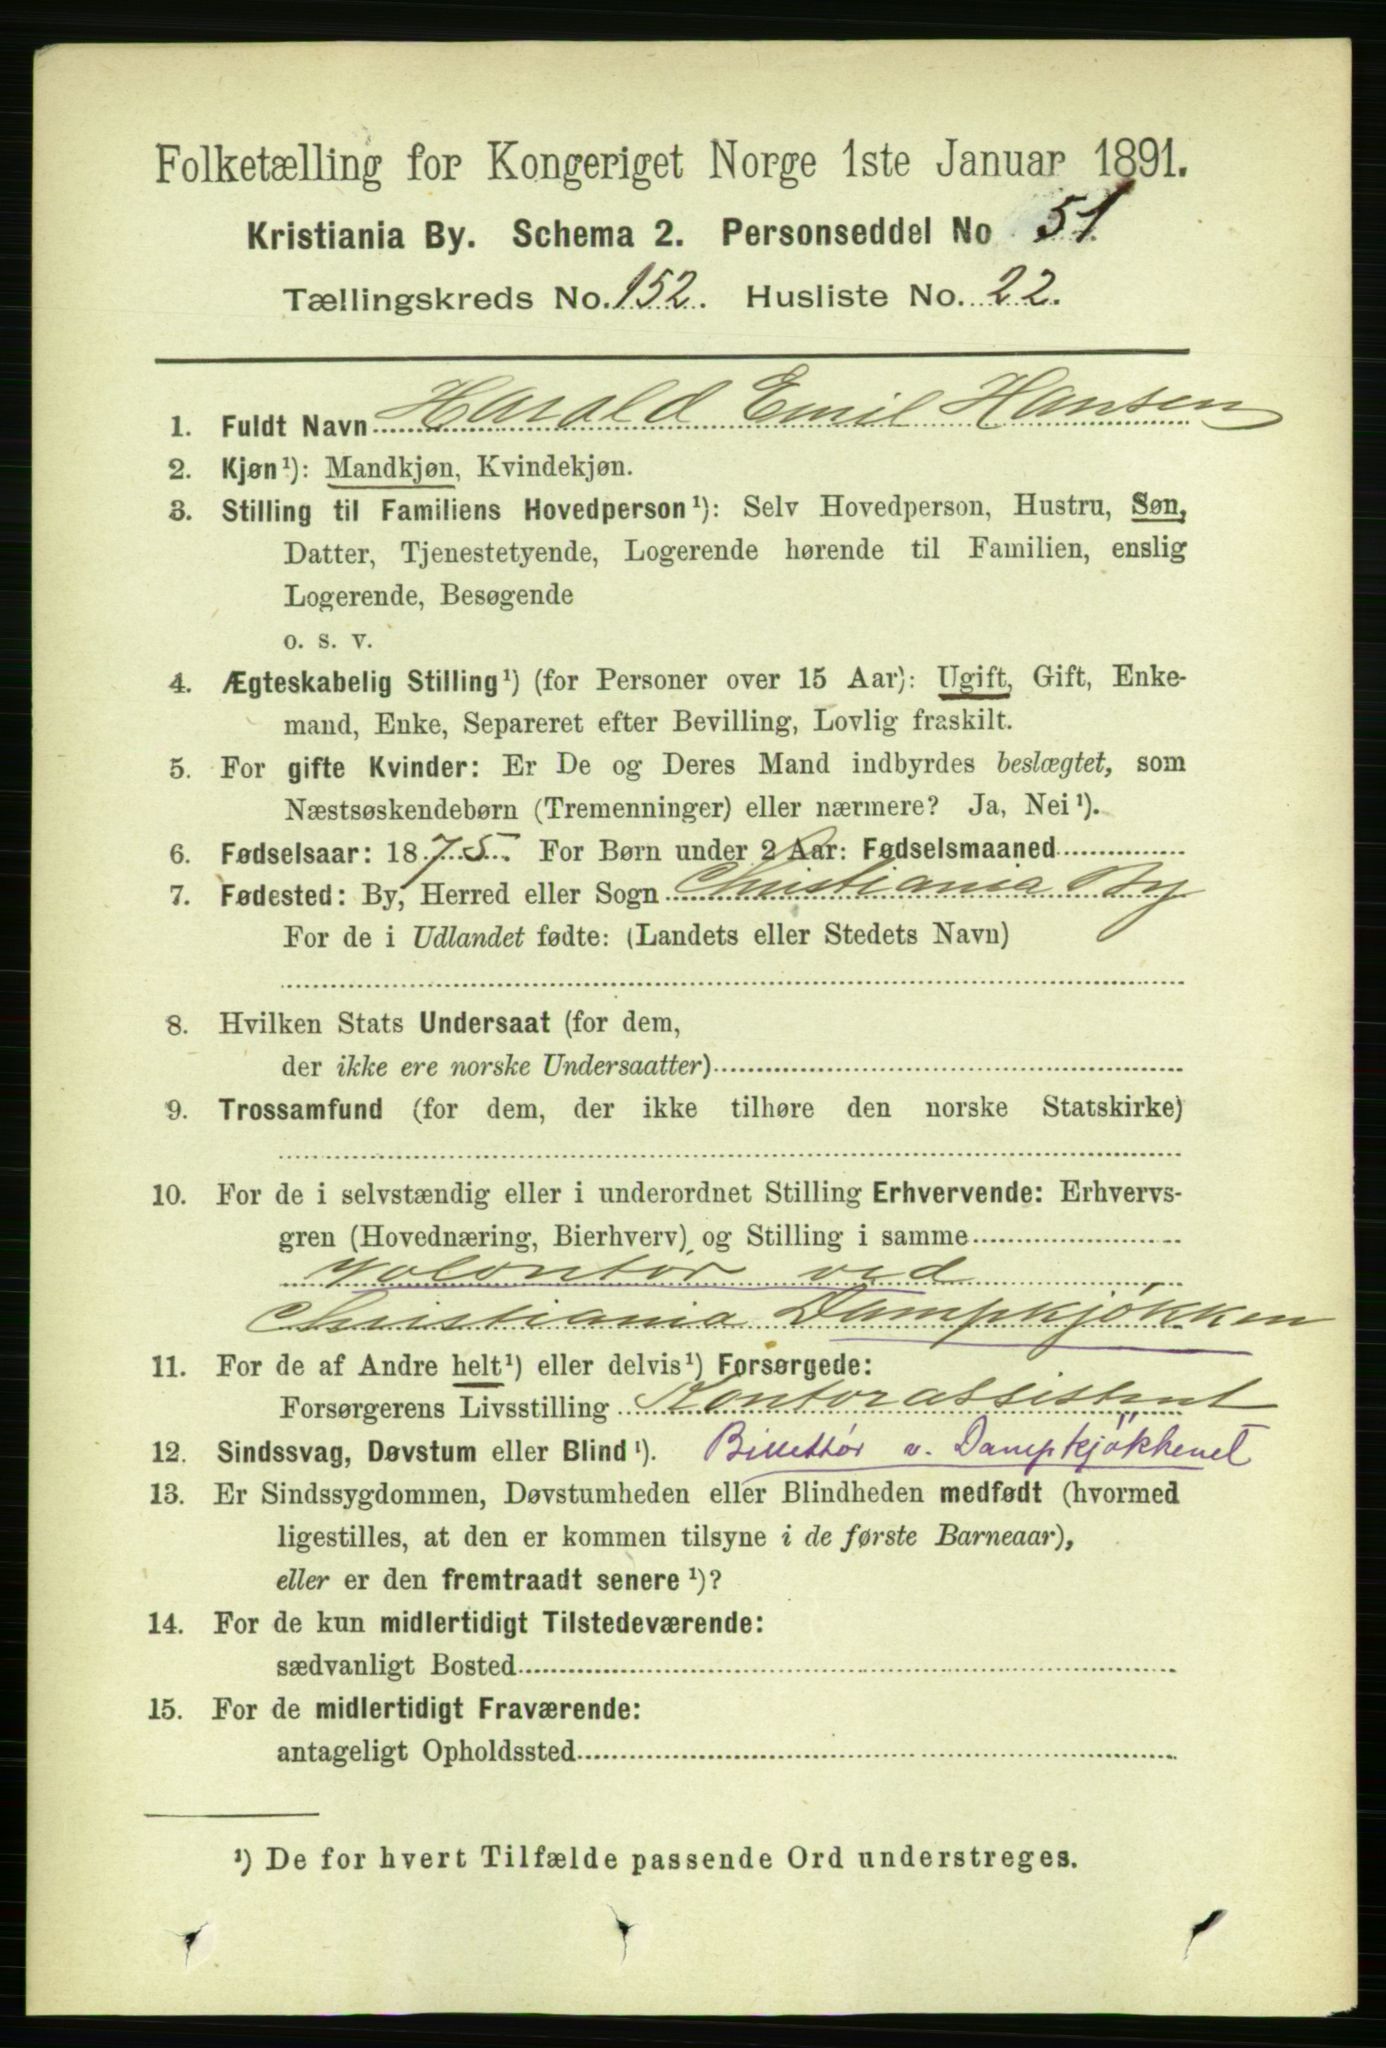 Folketælling for Kongeriget Norge 1ste Januar 1891.
Kristiania By. Schema 2. Personseddel No 51.
Tællingskreds No. 152. Husliste No. 22.
1. Fuldt Navn Harald Emil Hansen
2. Kjøn ¹): Mandkjøn, Kvindekjøn.
3. Stilling til Familiens Hovedperson ¹): Selv Hovedperson, Hustru, Søn,
Datter, Tjenestetyende, Logerende hørende til Familien, enslig
Logerende, Besøgende
o. s. v.
4. Ægteskabelig Stilling ¹) (for Personer over 15 Aar): Ugift, Gift, Enke-
mand, Enke, Separeret efter Bevilling, Lovlig fraskilt.
5. For gifte Kvinder: Er De og Deres Mand indbyrdes beslægtet, som
Næstsøskendebørn (Tremenninger) eller nærmere? Ja, Nei ¹).
6. Fødselsaar: 1875. For Børn under 2 Aar: Fødselsmaaned
7. Fødested: By, Herred eller Sogn Christiania By
For de i Udlandet fødte: (Landets eller Stedets Navn)
8. Hvilken Stats Undersaat (for dem,
der ikke ere norske Undersaatter)
9. Trossamfund (for dem, der ikke tilhøre den norske Statskirke)
10. For de i selvstændig eller i underordnet Stilling Erhvervende: Erhvervs-
gren (Hovednæring, Bierhverv) og Stilling i samme
Volontör ved
Christiania Dampkjökken
11. For de af Andre helt ¹) eller delvis ¹) Forsørgede:
Forsørgerens Livsstilling Kontorassistent
12. Sindssvag, Døvstum eller Blind ¹). Billettör v. Dampkjökkenet
13. Er Sindssygdommen, Døvstumheden eller Blindheden medfødt (hvormed
ligestilles, at den er kommen tilsyne i de første Barneaar),
eller er den fremtraadt senere ¹)?
14. For de kun midlertidigt Tilstedeværende:
sædvanligt Bosted
15. For de midlertidigt Fraværende:
antageligt Opholdssted
¹) De for hvert Tilfælde passende Ord understreges.